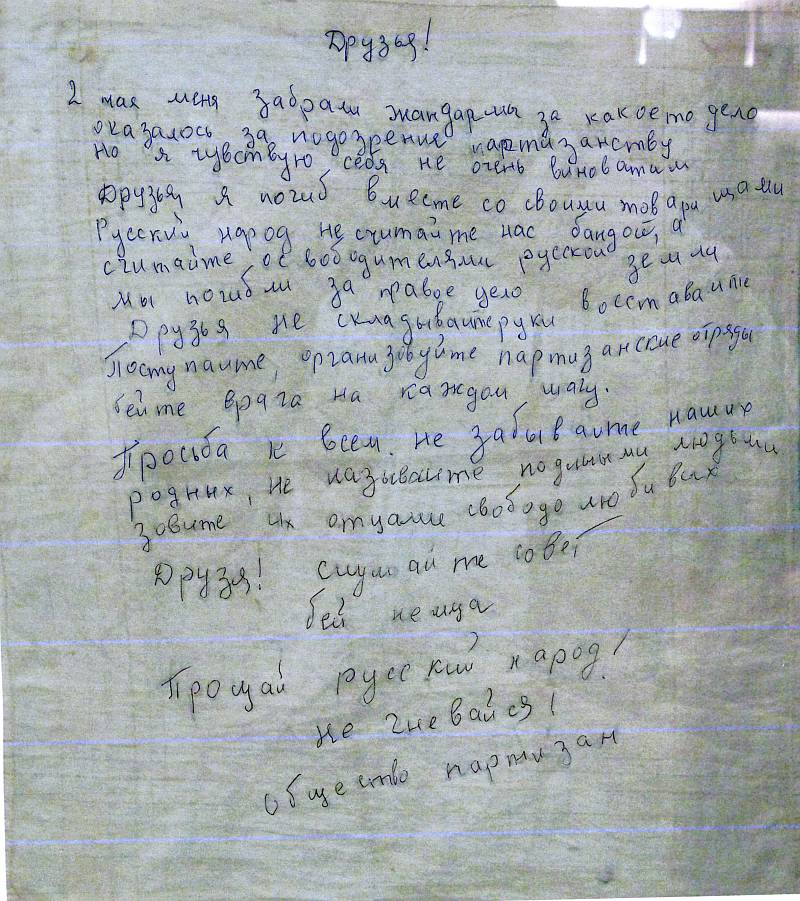 Друзья!
2 мая меня забрали жандармы за какоето дело
оказалось за подозрение партизанству
но я чувствую себя не очень виноватым
Друзья, я погиб вместе со своими товарищами
Русский народ не считайте нас бандой, а
считайте освободителями русской земли
мы погибли за правое дело восставайте
Друзья не складывайте руки
Поступайте, организовуйте партизанские отряды
бейте врага на каждом шагу.
Просьба к всем. не забывайте наших
родных, не называйте подлыми людьми
зовите их отцами свободолюбивых
Друзя! слушайте совет
бей немца
Прощай русский народ!
не гневайся!
общество партизан